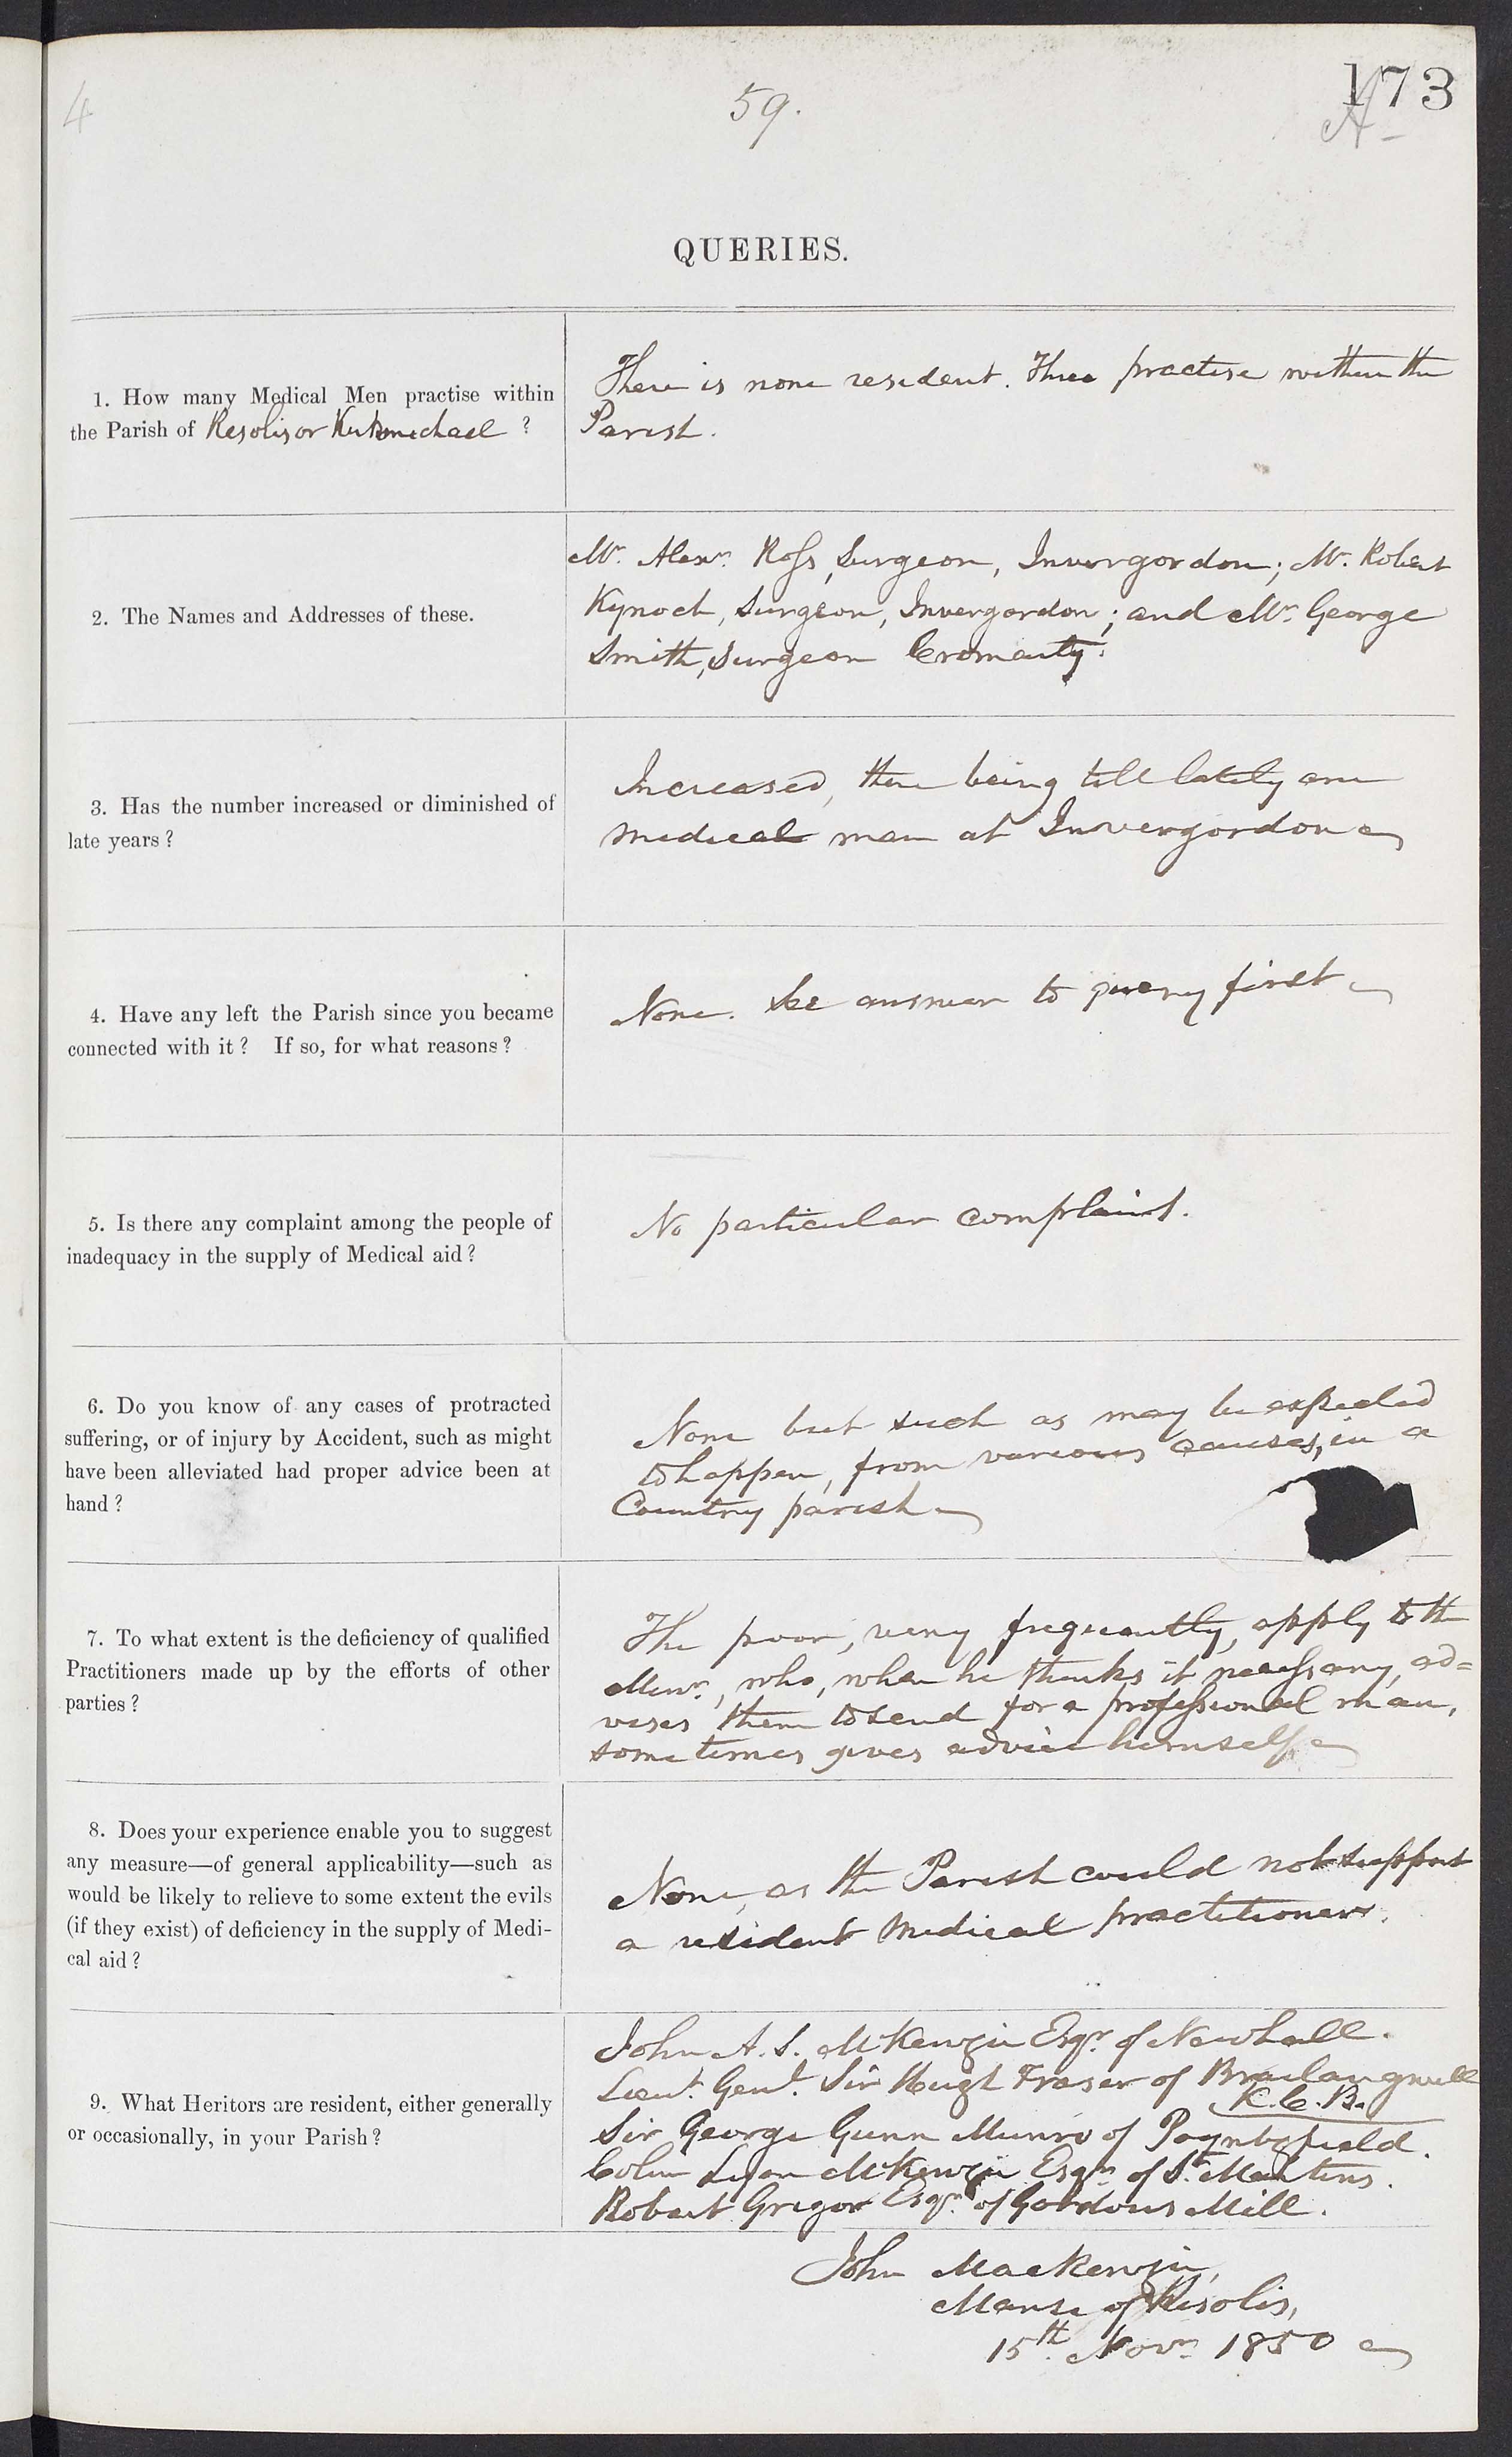 4
59.
173
A-
QUERIES.
1. How many Medical Men practise within
the Parish of Resolis or Kirkmichael ?
There is none resident. Three practise within the
Parish.
2. The Names and Addresses of these.
Mr. Alexr. Ross, Surgeon, Invergordon; Mr. Robert
Kynoch, Surgeon, Invergordon; and Mr. George
Smith, Surgeon Cromarty.
3. Has the number increased or diminished of
late years ?
Increased, there being till lately one
medical man at Invergordon
4. Have any left the Parish since you became
connected with it ? If so, for what reasons ?
None. See answer to query first
5. Is there any complaint among the people of
inadequacy in the supply of Medical aid ?
No particular complaint.
6. Do you know of any cases of protracted
suffering, or of injury by Accident, such as might
have been alleviated had proper advice been at
hand ?
None but such as may be expected
to happen, from various causes, in a
Country parish
7. To what extent is the deficiency of qualified
Practitioners made up by the efforts of other
parties ?
The poor, very frequently, apply to the
Minr., who, when he thinks it necessary, ad=
vises them to send for a professional man,
sometimes gives advice himself
8. Does your experience enable you to suggest
any measure—of general applicability—such as
would be likely to relieve to some extent the evils
(if they exist) of deficiency in the supply of Medi-
cal aid ?
None, as the Parish could not support
a resident Medical practitioner.
9. What Heritors are resident, either generally
or occasionally, in your Parish ?
John A. S. McKenzie Esqr. of Newhall.
Lieut. Genl. Sir Hugh Fraser of Braelangwell
K.C.B.
Sir George Gunn Munro of Poyntzfield.
Colin Lyon McKenzie Esqr. of St. Martins.
Robert Grigor Esqr. of Gordons Mill.
John Mackenzie,
Manse of Resolis,
15th Novr. 1850